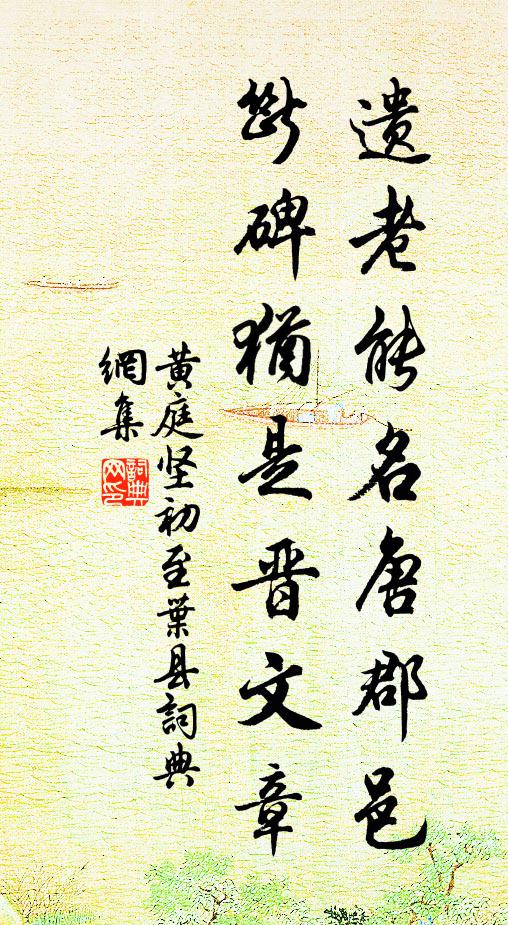 遗老能名唐郡邑
断碑犹是晋文章
黄庭坚初至葉县詞典
網集
詞典
网印